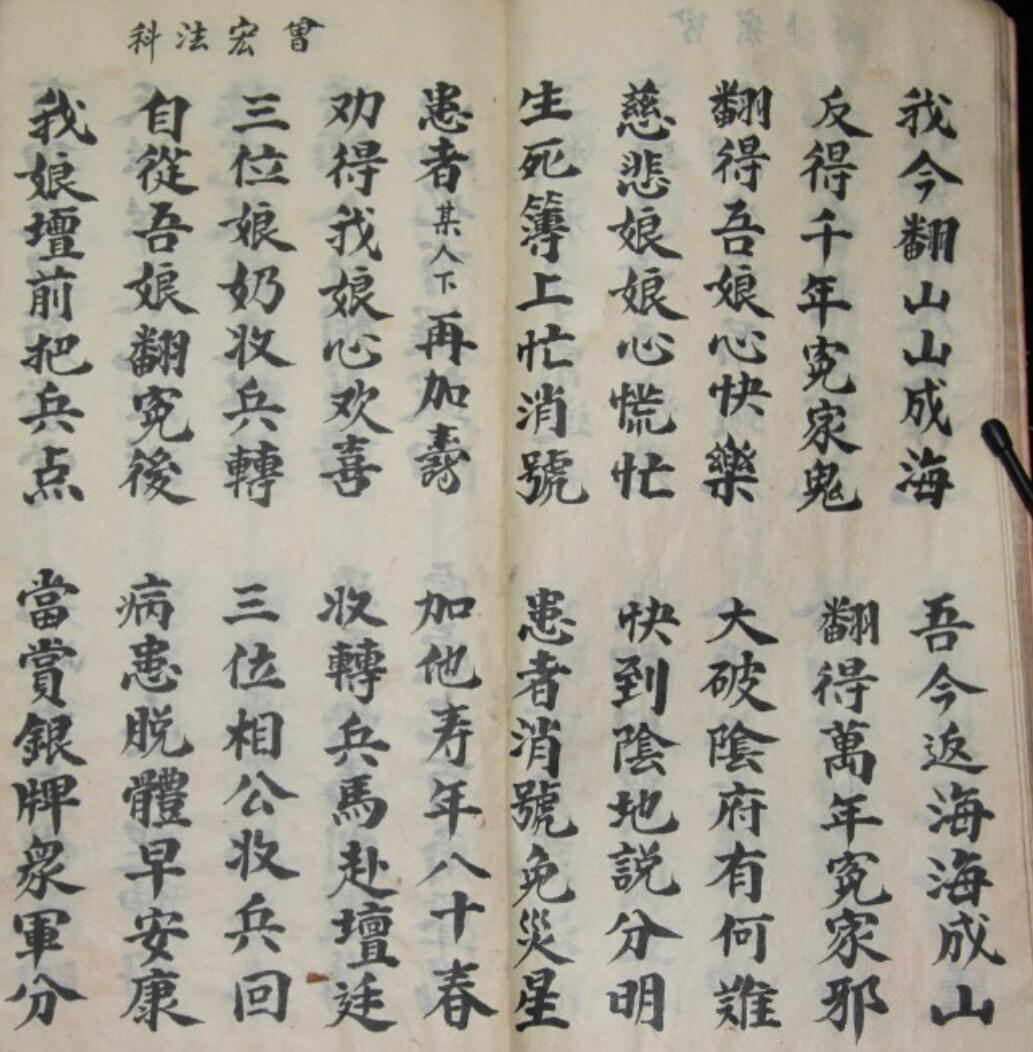 曾宏法科
我今翻山山成海 吾今返海海成山
反得千年寃家鬼 翻得萬年寃家邪
翻得吾娘心快樂 大破陰府有何難
慈悲娘娘心慌忙 快到陰地説分明
生死簿上忙消號 患者消號免災星
患者某人下再加壽 加他寿年八十春
劝得我娘心欢喜 收轉兵馬赴壇廷
三位娘奶收兵轉 三位相公收兵回
自從吾娘翻寃後 病患脱體早安康
我娘壇前把兵点 當賞銀牌衆軍分